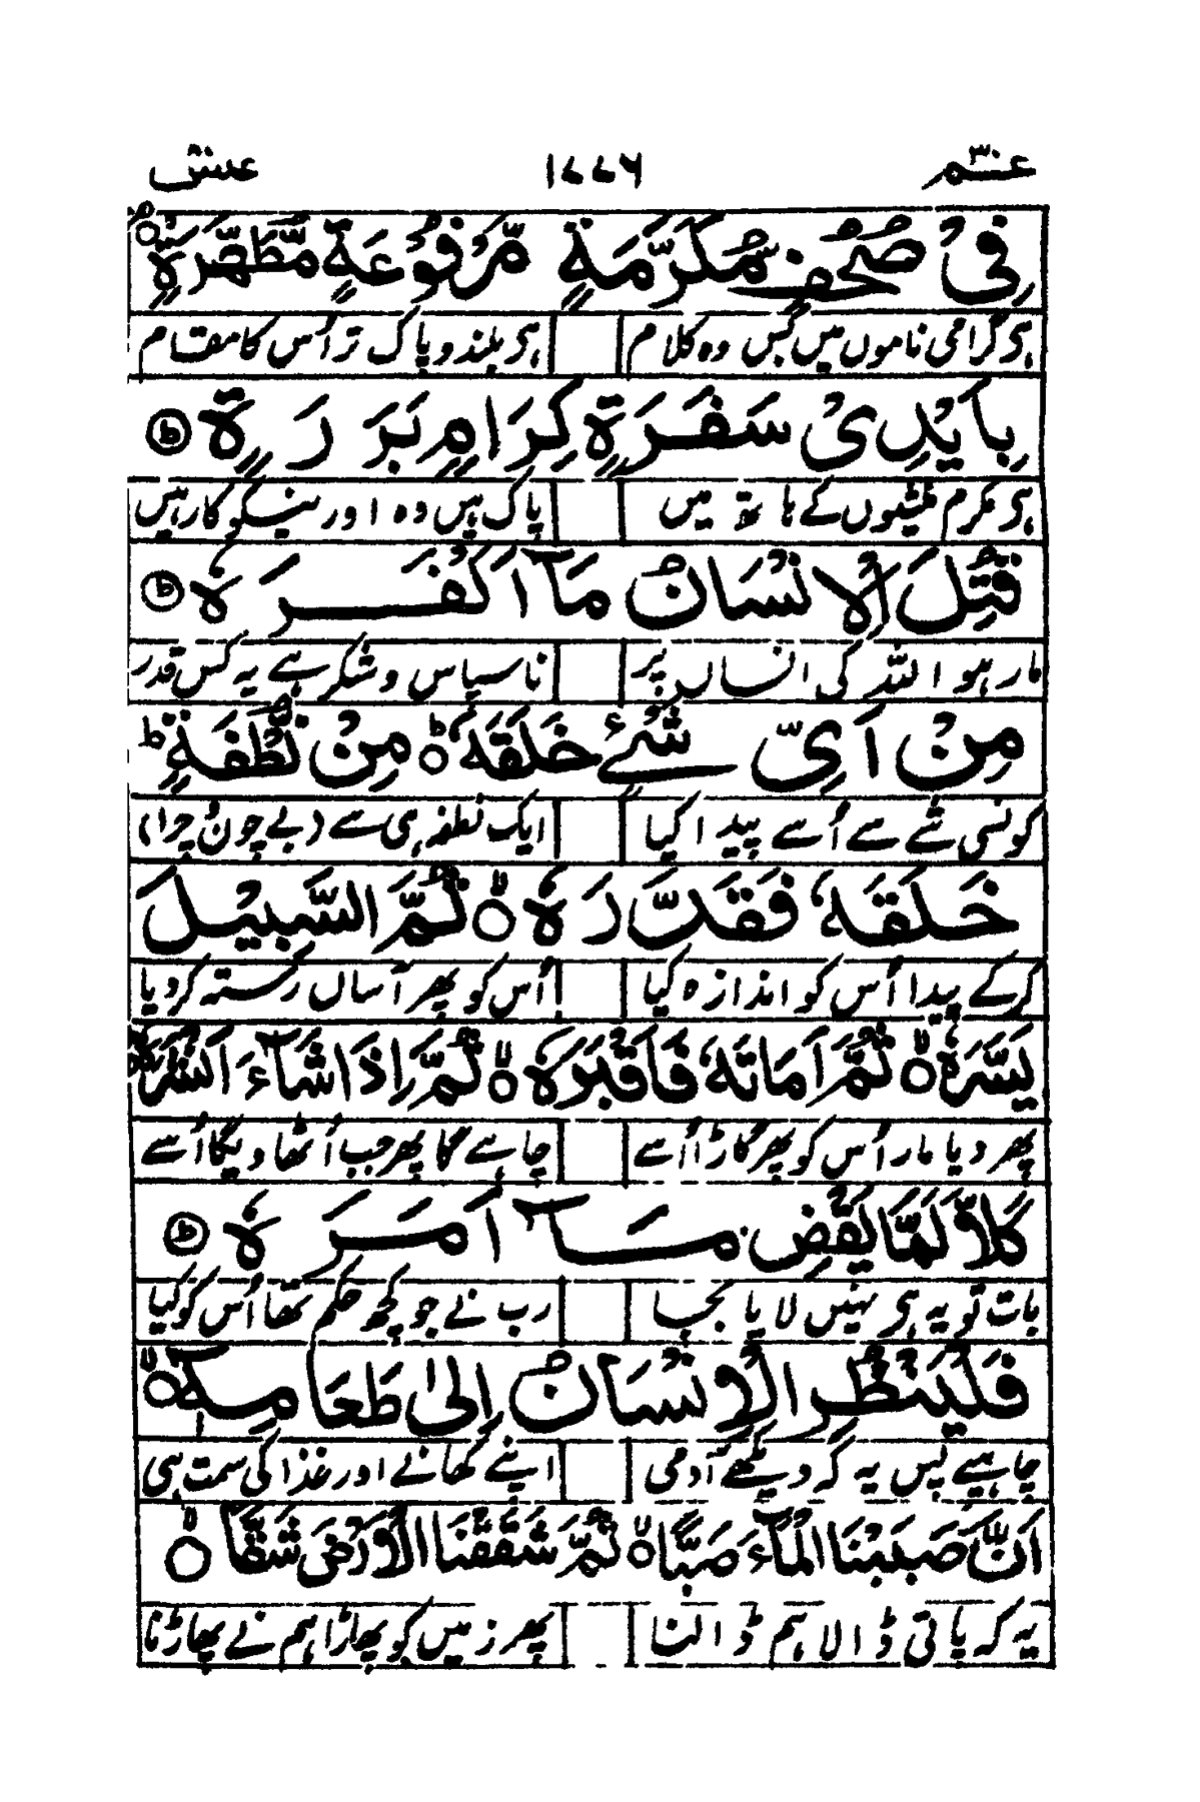 عـــم ٣٠ ١٧٧٦ عبس
فِیْ صُحُفٍ مُّكَرَّمَةٍ مَّرْفُوْعَةٍ مُّطَهَّرَةٍۭ
ہی گرامی ناموں میں بس وہ کلام ہی بلند و پاک تر اُس کا مقام
بِاَیْدِیْ سَفَرَةٍ كِرَامٍۭ بَرَرَةٍ ؕ
ہی مکرم منشیوں کے ہاتھ میں پاک ہیں وہ اور نیکو کار ہیں
قُتِلَ الْاِنْسَانُ مَاۤ اَكْفَرَهٗ ؕ
مار ہو اللہ کی انساں پر ناسپاس و شکر ہے یہ کس قدر
مِنْ اَیِّ شَیْءٍ خَلَقَهٗ ؕ مِنْ نُّطْفَةٍ ؕ
کونسی شے سے اُسے پیدا کیا ایک نطفہ ہی سے (بے چون و چرا)
خَلَقَهٗ فَقَدَّرَهٗ ۙ ثُمَّ السَّبِیْلَ
کرکے پیدا اُس کو اندازہ کیا اُس کو پھر آساں رستہ کر دیا
یَسَّرَهٗ ۙ ثُمَّ اَمَاتَهٗ فَاَقْبَرَهٗ ۙ ثُمَّ اِذَا شَآءَ اَنْشَرَهٗ
پھر دیا مار اُس کو پھر گاڑا اُسے چاہے گا پھر جب اُٹھا دیگا اُسے
كَلَّا لَمَّا یَقْضِ مَاۤ اَمَرَهٗ ؕ
بات تو یہ ہی نہیں لایا بجا رب نے جو کچھ حکم تھا اُس کو کیا
فَلْیَنْظُرِ الْاِنْسَانُ اِلٰی طَعَامِهٖۤ ۙ
چاہیے پس یہ کہ دیکھے آدمی اپنے کھانے اور غذا کی سمت ہی
اَنَّا صَبَبْنَا الْمَآءَ صَبًّا ۙ ثُمَّ شَقَقْنَا الْاَرْضَ شَقًّا ۙ
یہ کہ پانی ڈالا ہم ڈالنا پھر زمیں کو پھاڑا ہم نے پھاڑنا